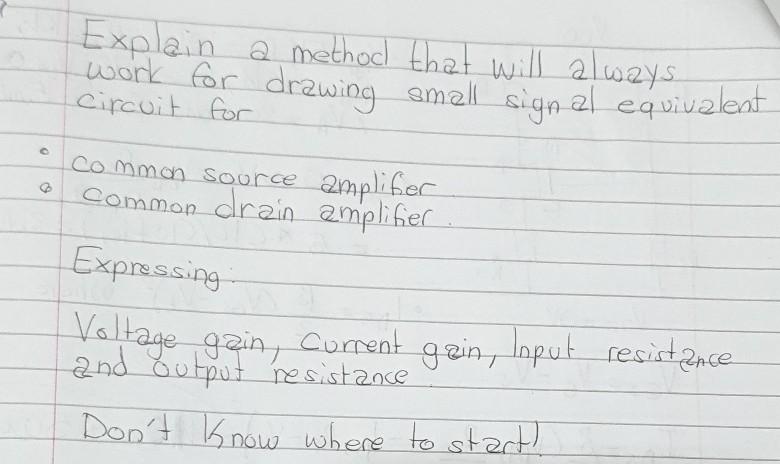 Explain a method that will always
work for drawing small signal equivalent
circuit for
• common source amplifier
• Common drain amplifier.
Expressing:
Voltage gain, current gain, Input resistance
and output resistance
Don't know where to start!